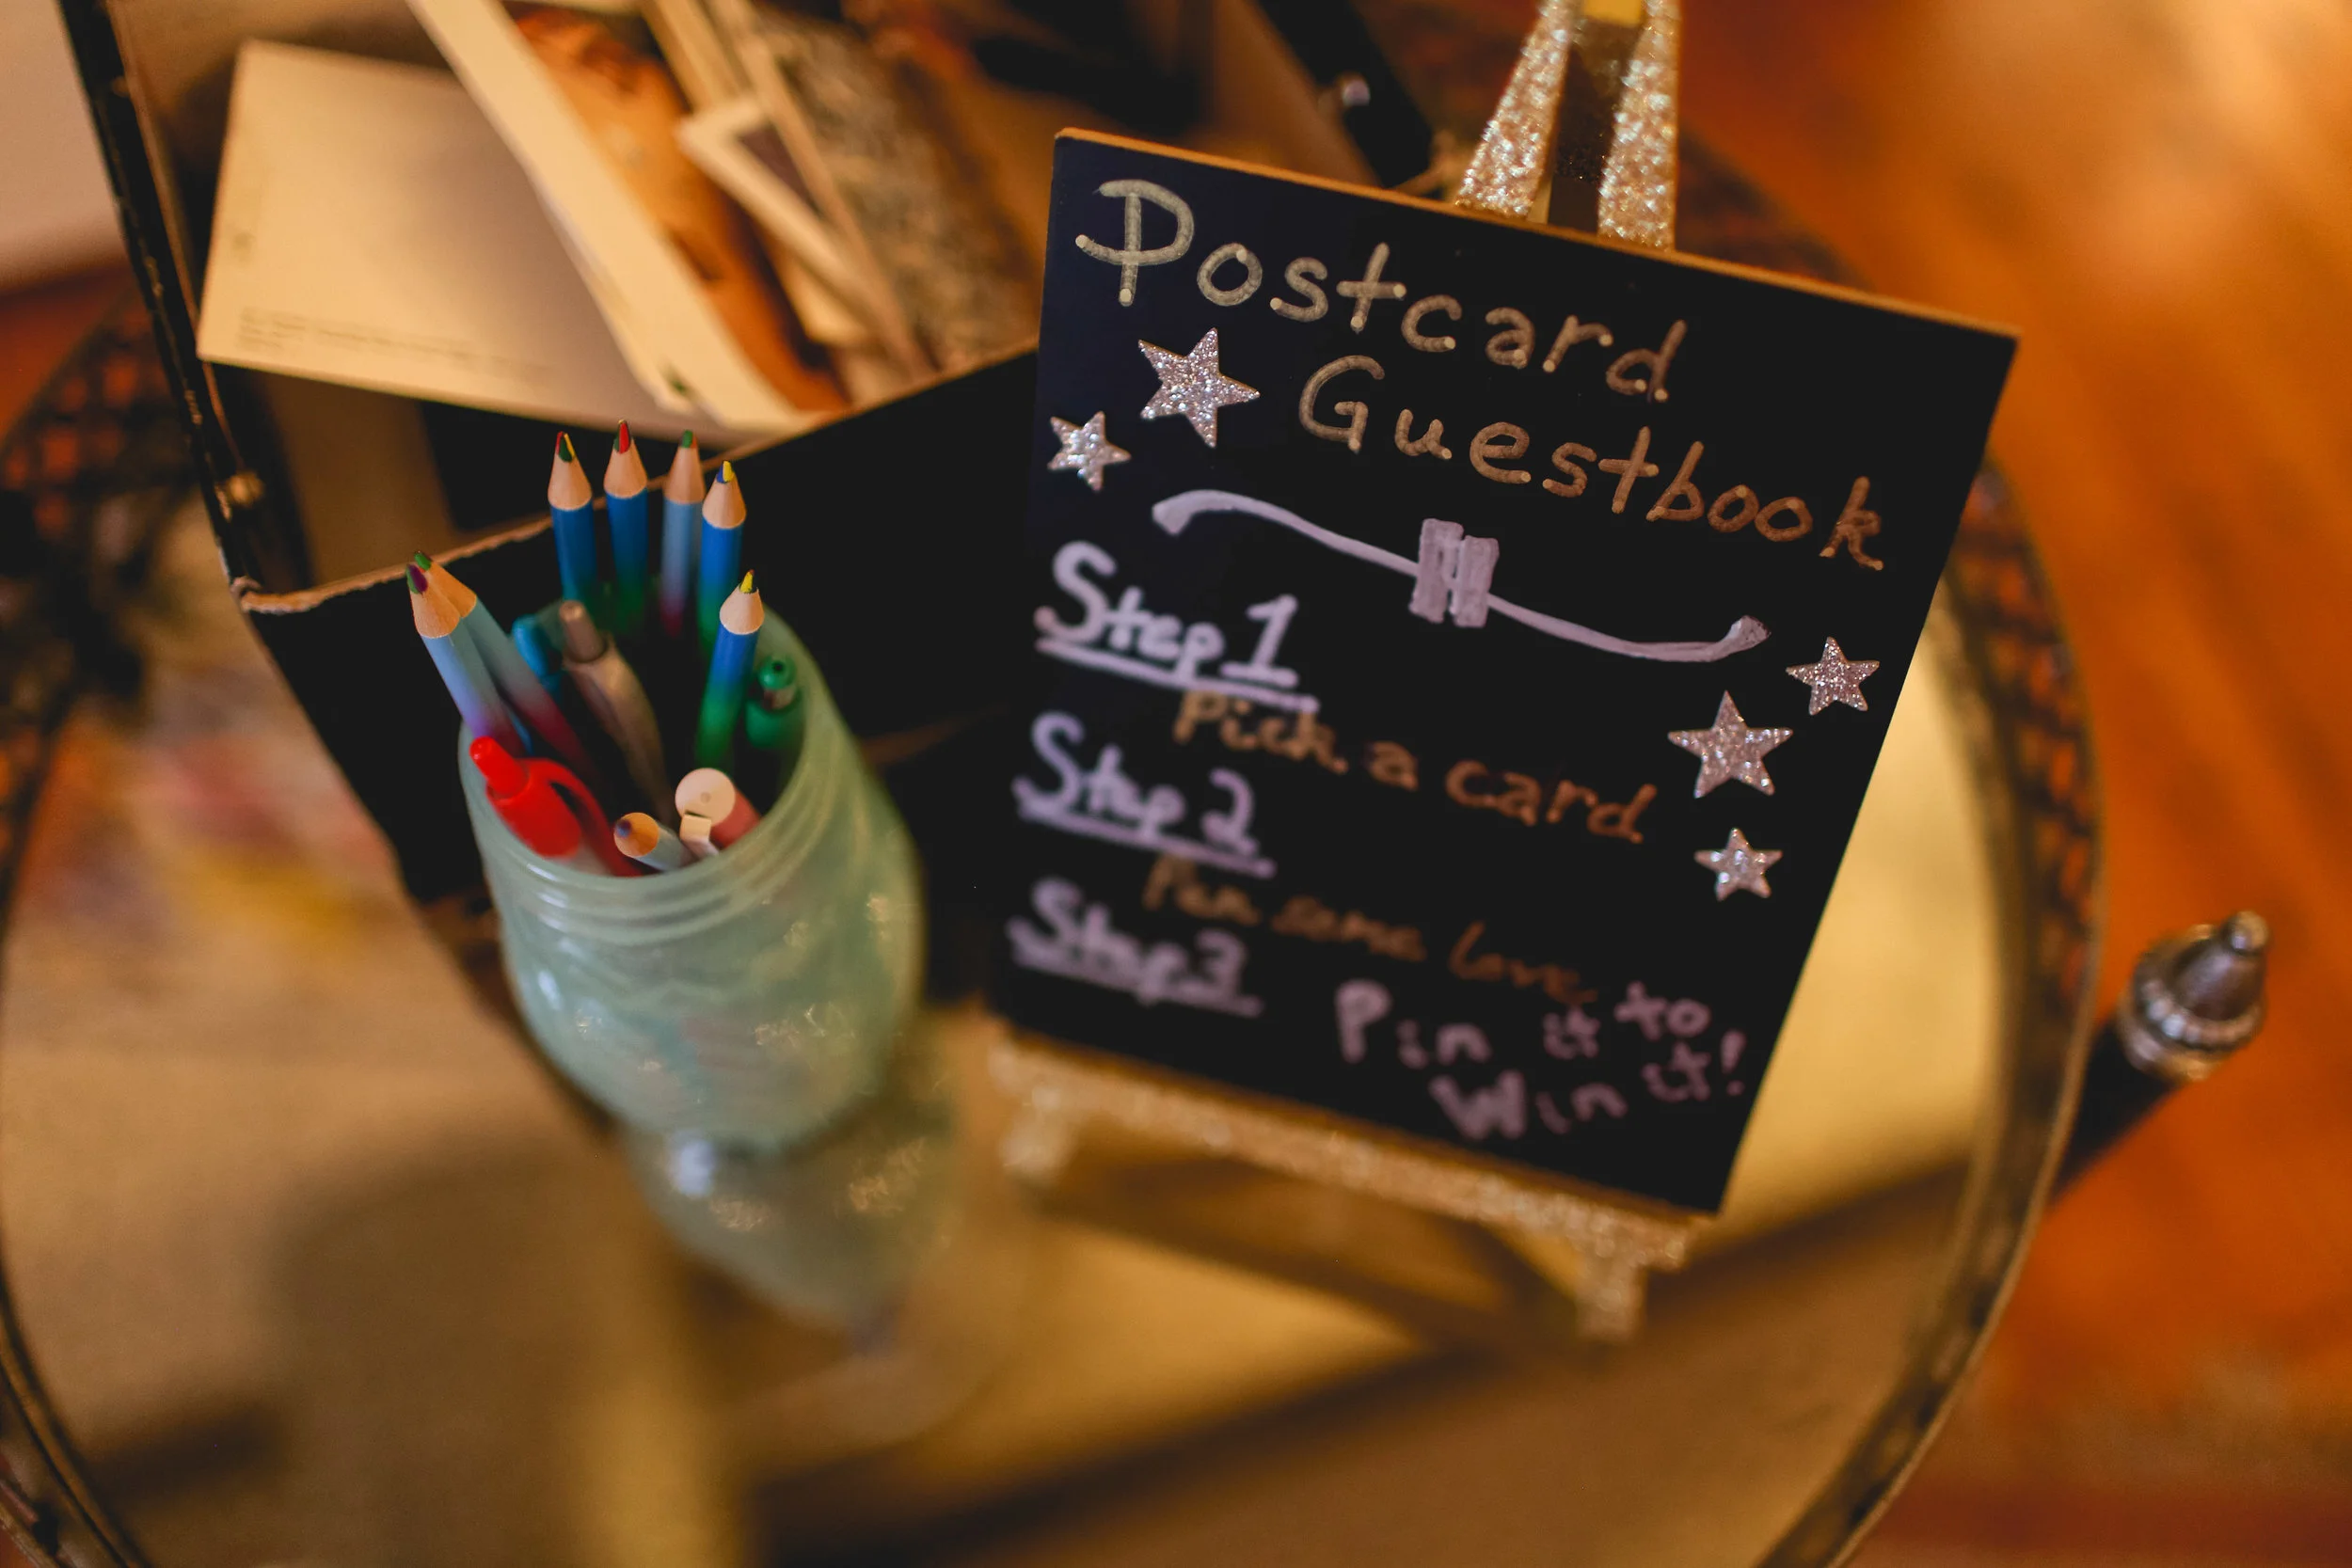 Postcard
Guestbook
Step 1
Pick a card
Step 2
Pen some love
Step 3
Pin it to
Win it!